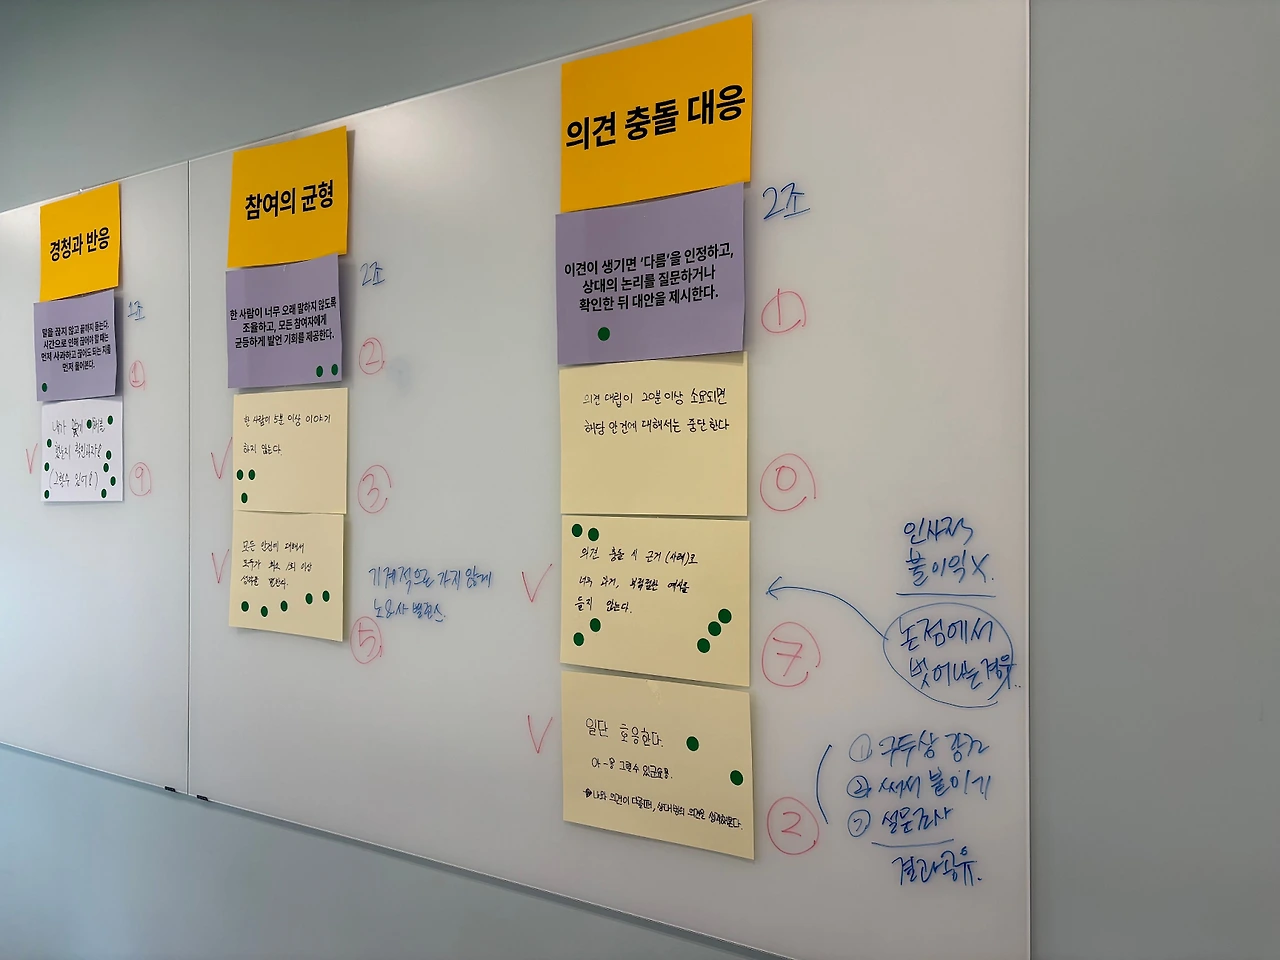 경청과 반응
1조
말을 끊지 않고 끝까지 듣는다.
시간으로 인해 끊어야 할 때는
먼저 사과하고 끊어도 되는 지를
먼저 물어본다.
①
내가 맞게 이해를
했는지 확인하자!
(그럴수 있어!)
⑨
참여의 균형
2조
한 사람이 너무 오래 말하지 않도록
조율하고, 모든 참여자에게
균등하게 발언 기회를 제공한다.
②
한 사람이 5분 이상 이야기
하지 않는다.
③
모든 안건에 대해서
모두가 최소 1회 이상
말한다.
기계적으로 가지 않게
노요사 밸런스.
⑤
의견 충돌 대응
2조
이견이 생기면 '다름'을 인정하고,
상대의 논리를 질문하거나
확인한 뒤 대안을 제시한다.
①
의견 대립이 20분 이상 소요되면
해당 안건에 대해서는 중단한다
⓪
의견 충돌 시 근거(사례)로
너무 과거, 부적절한 예시를
들지 않는다.
⑦
일단 호응한다.
아-용 그럴수 있군요용.
나와 의견이 다를때, 상대방의 의견을 생각해본다.
②
인사적
불이익X.
논점에서
벗어나는 경우..
① 구두상 강조
② 써서 붙이기
③ 설문조사
결과공유.